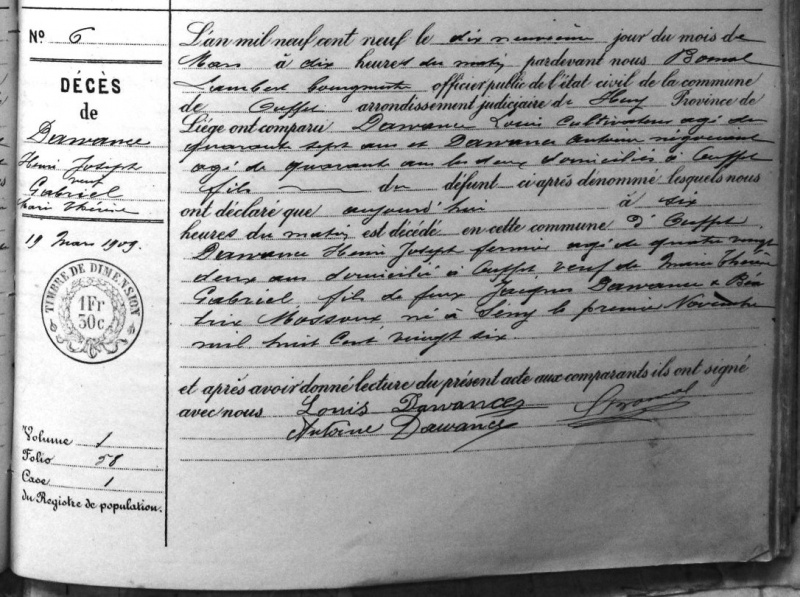 N° 6
DÉCÈS
de
Dawance
Henri Joseph
veuf
Gabriel
Marie Thérèse
19 Mars 1909.
TIMBRE DE DIMENSION
1Fr
30c
Volume 1
Folio 58
Case 1
du Registre de population.
L'an mil neuf cent neuf le dix neuvième jour du mois de
Mars à dix heures du matin pardevant nous Bomal
Lambert bourgmestre officier public de l'état civil de la commune
de Ouffet arrondissement judiciaire de Huy Province de
Liége ont comparu Dawance Louis Cultivateur agé de
quarante sept ans et Dawance Antoine négociant
agé de quarante ans les deux domiciliés à Ouffet
fils du défunt ci-après dénommé lesquels nous
ont déclaré que aujourd'hui à six
heures du matin est décédé en cette commune d'Ouffet
Dawance Henri Joseph fermier agé de quatre vingt
deux ans domicilié à Ouffet veuf de Marie Thérèse
Gabriel fils de feux Jacques Dawance & Béa
trix Mossoux né à Seny le premier Novembre
mil huit Cent vingt six.
et après avoir donné lecture du présent acte aux comparants ils ont signé
avec nous Louis Dawance LBomal
Antoine Dawance